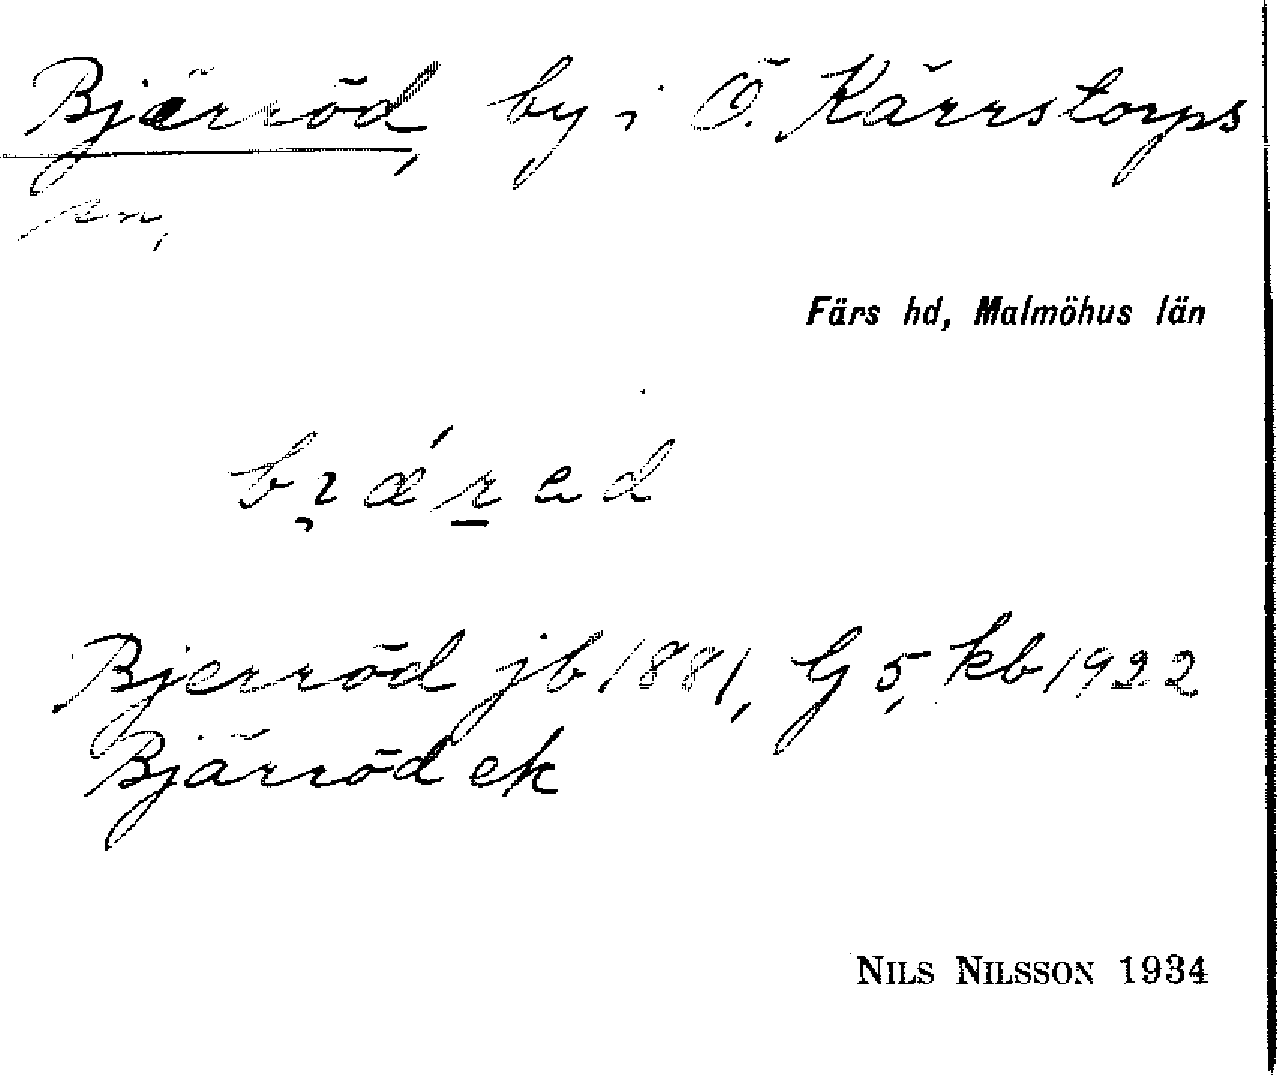 Bjärröd, by i Ö. Kärrstorps
sn,
Färs hd, Malmöhus län
Bjerröd jb 1881, G 5, kb 1922
Bjärröd ek
NILS NILSSON 1934